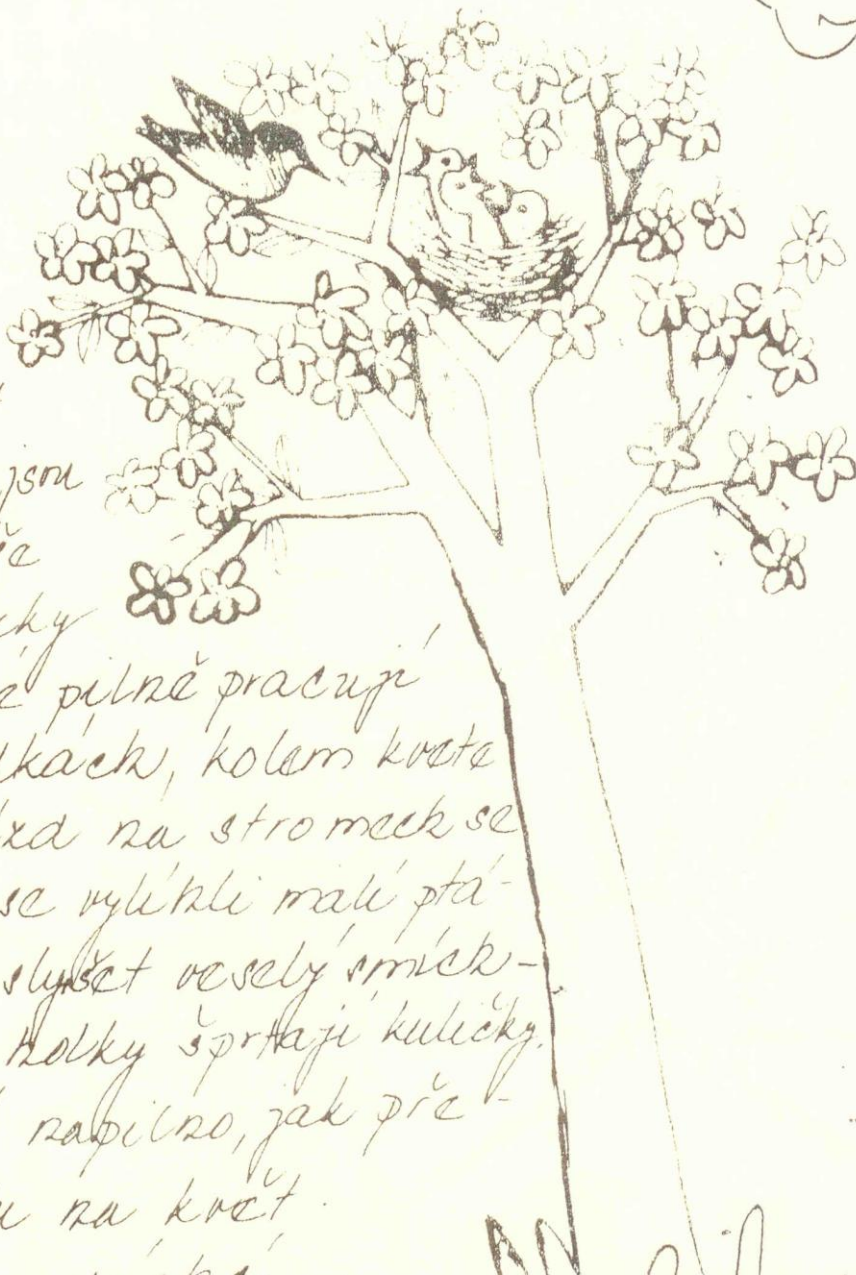 jsou
če
čky
é pilně pracují
lkách, kolem kvete
zd na stromech se
se vylíhli malí ptá-
slyšet veselý smích -
holky šprtají kuličky.
napilno, jak pře -
u na květ.